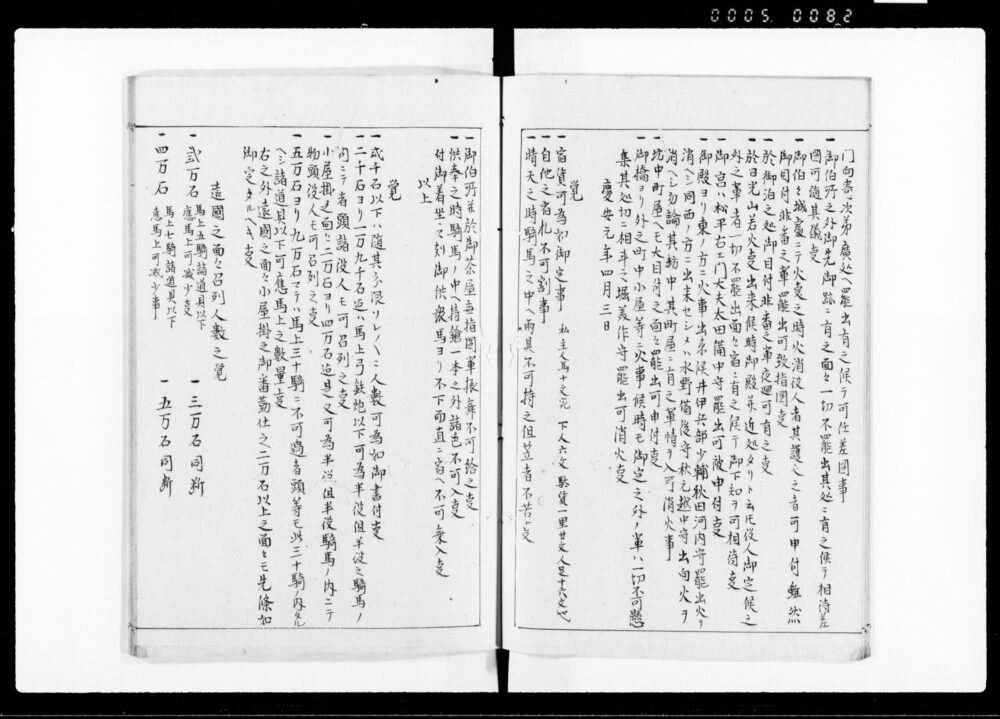 0005 0082
門向寄次第廣処ヘ罷出有之候テ可仕差図事
一御伯所之外御先御跡ニ有之面々一切不罷出其処ニ有之候テ相待差
図可随其儀叓
一御伯々城慶ニテ火叓之時火消役人者其護之者可申付雖然
御目付非番之輩罷出可致指図叓
一於御泊之処御目付非番之輩夜廻可有之叓
一於日光山若火叓出来候時御殿并近処タリト云氏役人御定候之
外之輩者一切不罷出面々宿ニ有之候テ御下知ヲ可相待叓
一御宮ハ松平右エ門大夫太田備中守罷出可被申付叓
一御殿ヨリ東ノ方ニ火事出来候井伊兵部少輔秋田河内守罷出火ヲ
消ヘシ同西ノ方ニ出来セシメハ水野備後守秋元越中守出向火ヲ
消ヘシ勿論其火坊中其町屋ニ有之輩情ヲ入可消火事
一坑中町屋ヘモ大目付之面々罷出可申付叓
一御橋ヨリ外之町中小屋等ニ火事候時モ御定之外ノ輩ハ一切不可懸
集其処切ニ相斗ニ堀美作守罷出可消火叓
慶安元年四月三日
覚
一宿貨可為如御定事 私主人馬十文宛 下人六文 駄賃一里廿文人足十六文也
一自他之宿札不可割事
一晴天之時騎馬之中ヘ雨具不可持之但笠者不苦叓
一御伯所并於御茶屋毎指図軍振舞不可給之叓
一供奉之時騎馬ノ中ヘ持鎗一本之外諸色不可入叓
付御着坐之刻御供衆馬ヨリ不下而直ニ宿ヘ不可乗入叓
以上
覚
一弐千石以下ハ随其分限ソレ〱ニ人数可為如御書付叓
一二千石ヨリ一万九千石迄ハ馬上弓鉄炮以下可為半役但半役之騎馬ノ
内ニテ者頭諸役人モ可召列之叓
一小屋掛之面々二万石ヨリ四万石迄是又可為半役但半役騎馬ノ内ニテ
物頭役人モ可召列之叓
一五万石ヨリ九万石マテハ馬上三十騎ニ不可過者頭等モ此三十騎ノ内タル
ヘシ諸道具以下可應馬上之数量叓
右之外遠國之面々小屋掛之御番勤仕之二万石以上之面々モ先條如
御定タルヘキ叓
遠國之面々召列人数之覚
一弐万石 馬上五騎諸道具以下
應馬上可減少叓
一三万石同断
一四万石 馬上七騎諸道具以下
應馬上可減少事
一五万石同断